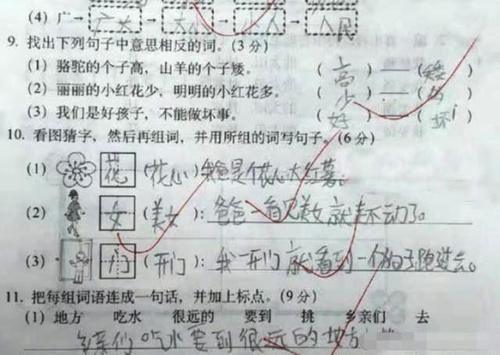 (4) 广→ 广大→ 大小→ 小人→ 人民
9. 找出下列句子中意思相反的词。(3 分)
(1) 骆驼的个子高,山羊的个子矮。 (高)——(矮
(2) 丽丽的小红花少,明明的小红花多。 (少)——(多
(3) 我们是好孩子,不能做坏事。 (好)——(坏
10. 看图猜字,然后再组词,并用所组的词写句子。(6 分)
(1) 花 (花心) 我爸是个花心大
(2) 女 (美女): 爸爸一看见美女就走不动了。
(3) 门 (开门): 我一开门就看到一个 跑过去。
11. 把每组词语连成一句话,并加上标点。(9 分)
(1) 地方 吃水 很远的 要到 挑 乡亲们 去
乡亲们吃水要到很远的地方